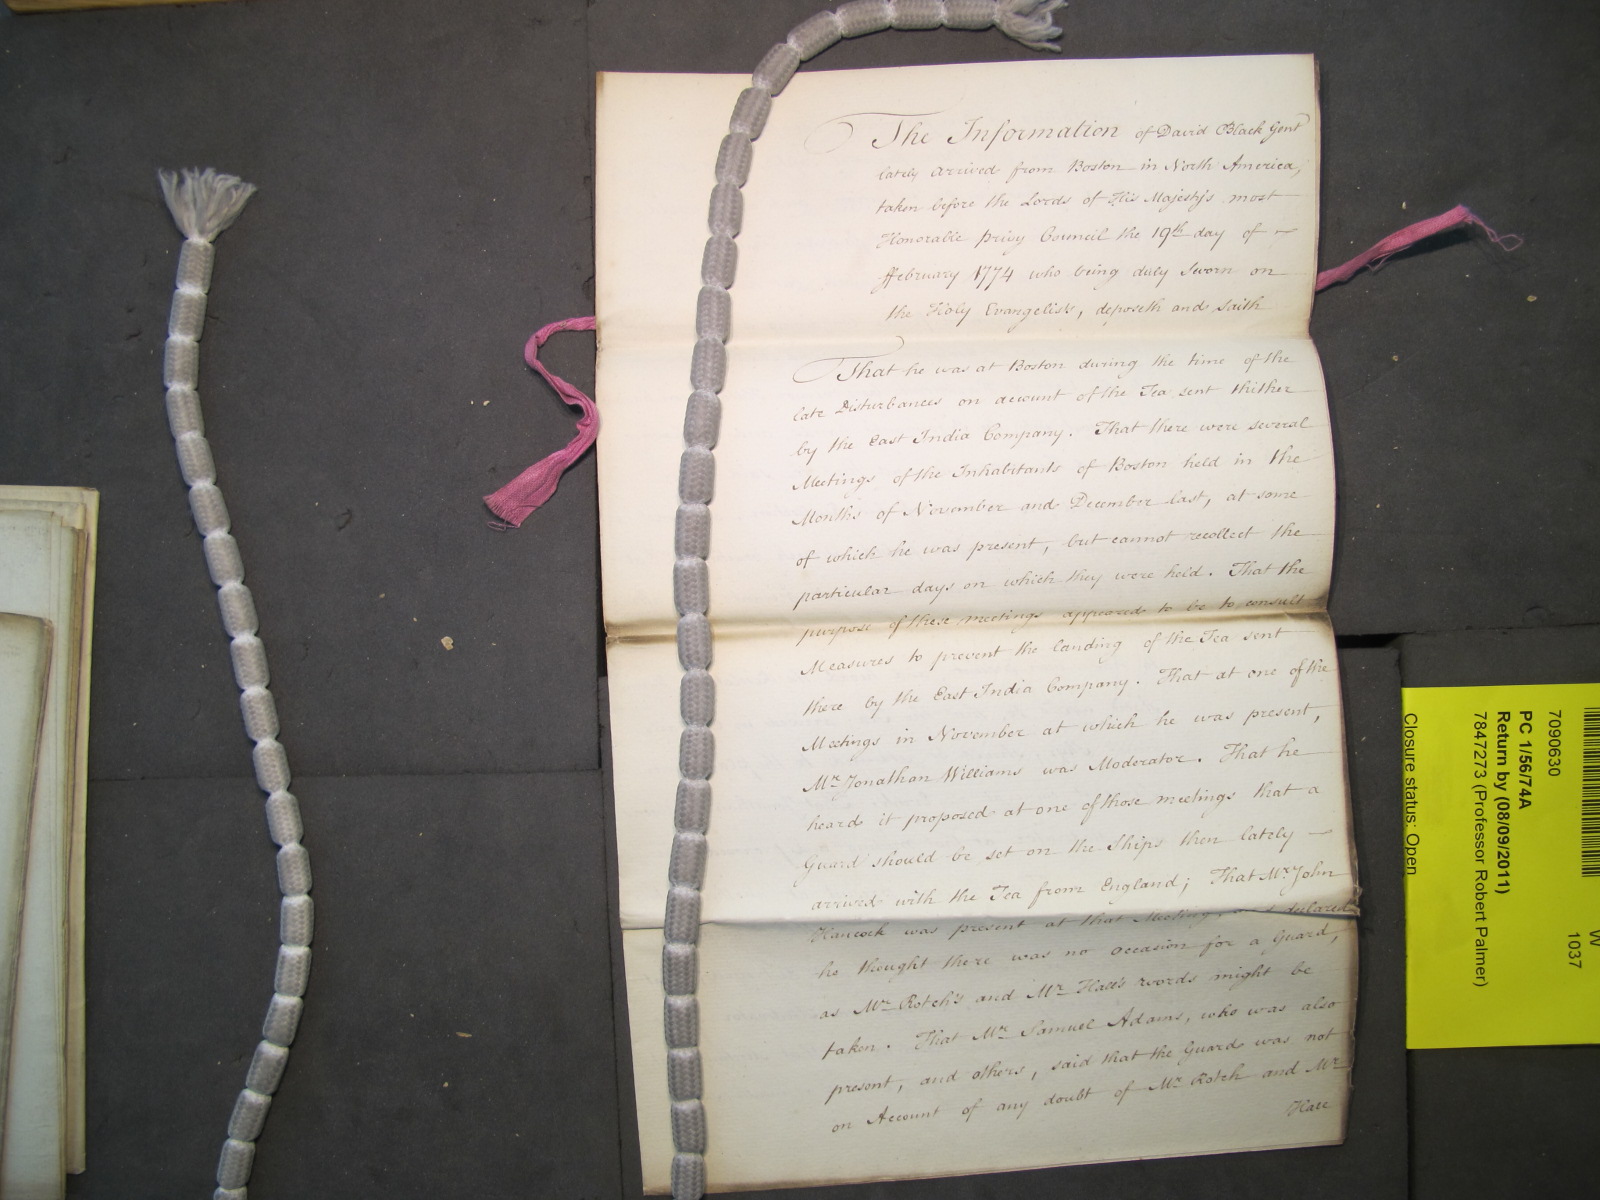 The Information of David Black Gent
lately arrived from Boston in North America,
taken before the Lords of His Majesty's most
Honorable privy Council the 19th day of
ffebruary 1774 who being duly sworn on
the Holy Evangelists, deposeth and saith
That he was at Boston during the time of the
late Disturbances on account of the Tea sent thither
by the East India Company. That there were several
Meetings of the Inhabitants of Boston held in the
Months of November and December last, at some
of which he was present, but cannot recollect the
particular days on which they were held. That the
purpose of these meetings appeared to be to consult
Measures to prevent the landing of the Tea sent
there by the East India Company. That at one of the
Meetings in November at which he was present,
Mr. Jonathan Williams was Moderator. That he
heard it proposed at one of those meetings that a
Guard should be set on the Ships then lately
arrived with the Tea from England; That Mr. John
Hancock was present at that Meeting, and declared
he thought there was no occasion for a Guard,
as Mr. Rotch's and Mr. Hall's words might be
taken. That Mr. Samuel Adams, who was also
present, and others, said that the Guard was not
on Account of any doubt of Mr. Rotch and Mr.
Hall
W
1037
7090630
PC 1/56/74A
Return by (08/09/2011)
7847273 (Professor Robert Palmer)
Closure status: Open